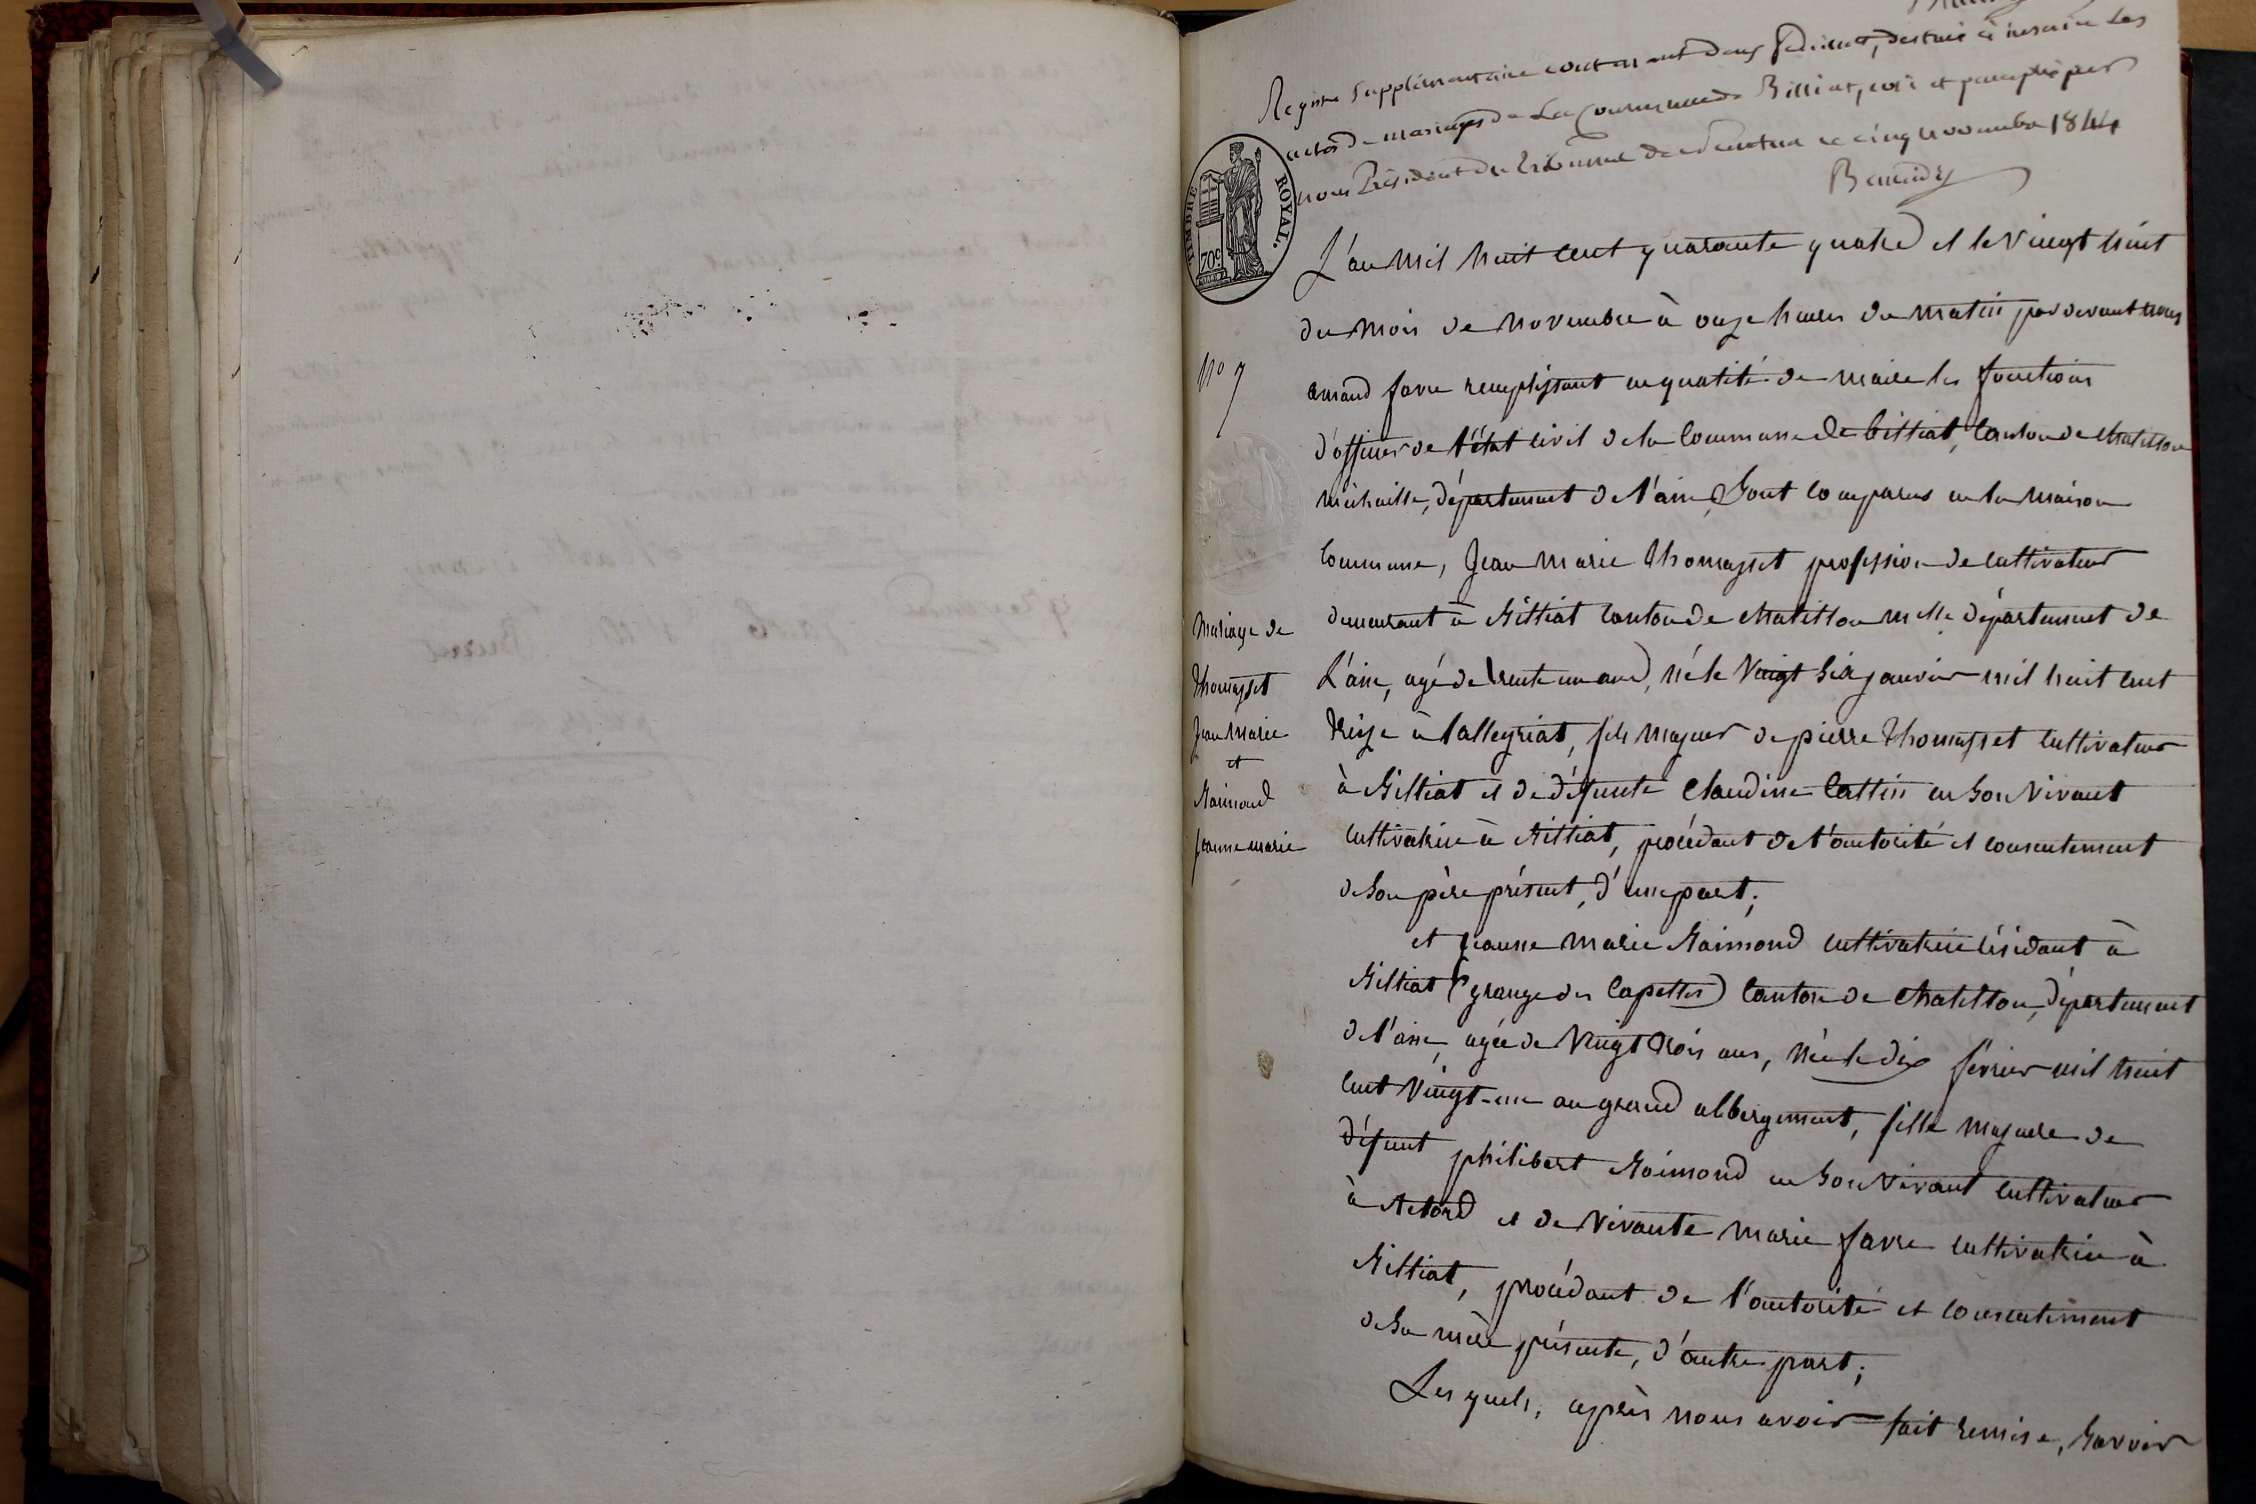 Registre supplémentaire contenant deux feuillets, destiné à inscrire les
actes de mariages de la Commune de Billiat, coté et paraphé par
nous Président du Tribunal de Nantua ce cinq novembre 1844
TIMBRE ROYAL.
70c
L'an mil huit cent quarante quatre et le vingt huit
du mois de novembre à onze heures du matin par devant nous
amand favre remplissant en qualité de maire les fonctions
d'officier de l'état civil de la Commune de billiat, Canton de chatillon
michaille, département de l'ain, Sont comparus en la maison
Commune, Jean Marie Thomasset profession de cultivateur
demeurant à Billiat Canton de chatillon mlle département de
L'ain, agé de trente un ans, né le Vingt Six janvier mil huit cent
treize à tallegriat, fils majeur de pierre Thomasset cultivateur
à Billiat et de défunte Claudine Cattin en Son Vivant
cultivatrice à Billiat, procédant de l'autorité et consentement
de Son père présent, d'une part;
et jeanne marie Raimond cultivatrice résidant à
Billiat (grange des Capettes) Canton de chatillon, département
de l'ain, agée de Vingt trois ans, née le dix février mil huit
cent Vingt-un au grand abbergement, fille majeure de
défunt philibert Raimond en Son Vivant cultivateur
à Retord et de vivante marie favre cultivatrice à
Billiat, procédant de l'autorité et consentement
de Sa mère présente, d'autre part;
Les quels, après nous avoir fait remise, Savoir
No 7
Mariage de
Thomasset
Jean Marie
et
Raimond
jeanne marie